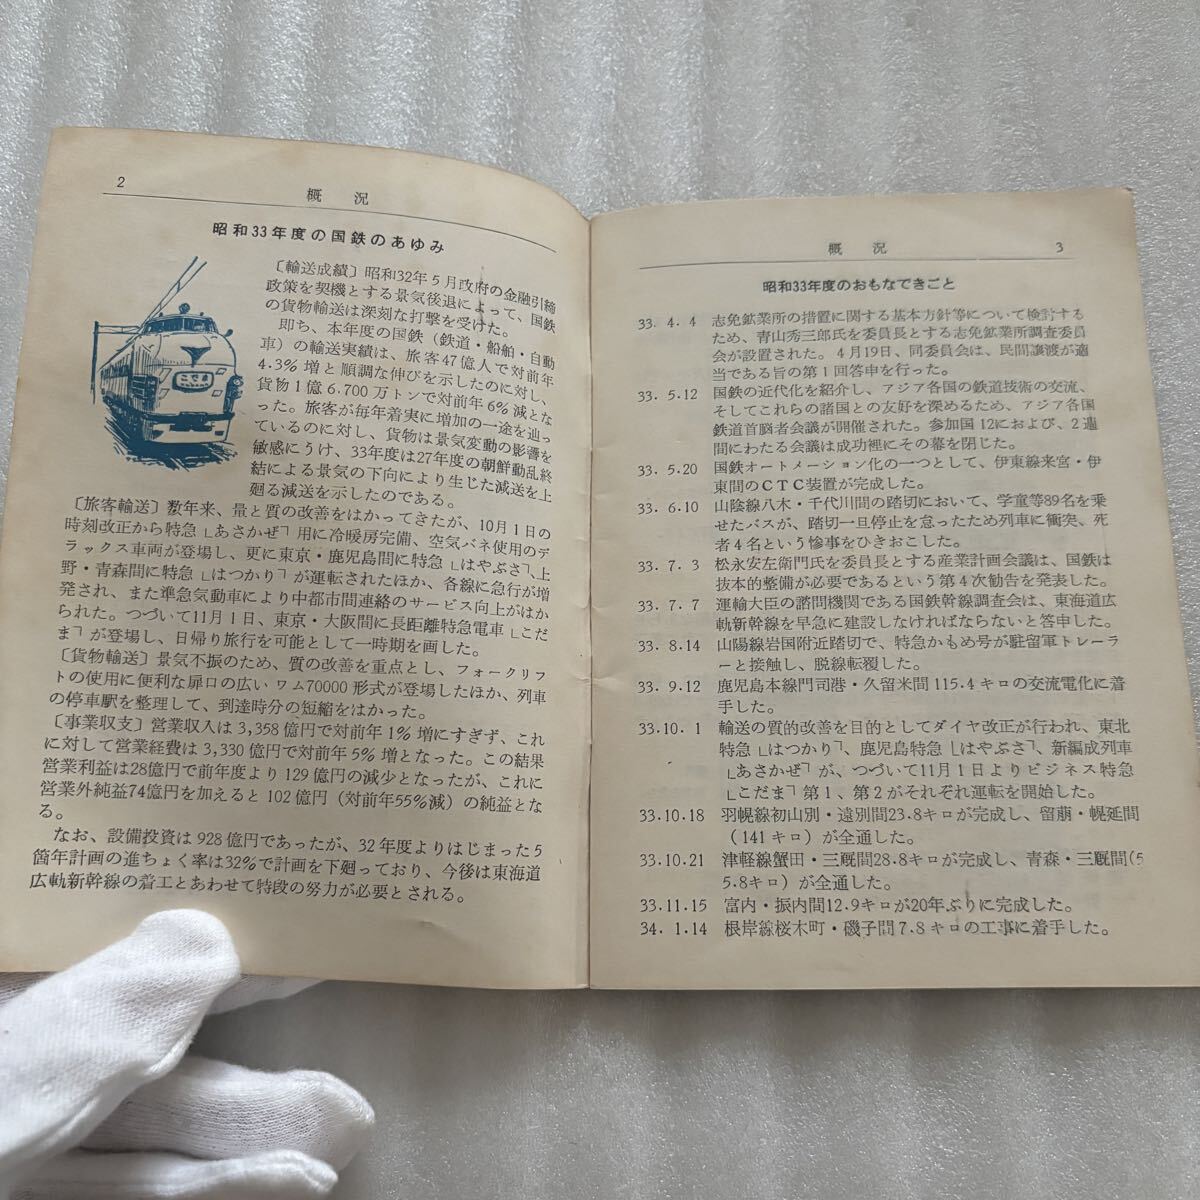 2
概況
昭和33年度の国鉄のあゆみ
こだま
〔輸送成績〕昭和32年5月政府の金融引締
政策を契機とする景気後退によって、国鉄
の貨物輸送は深刻な打撃を受けた。
即ち、本年度の国鉄（鉄道・船舶・自動
車）の輸送実績は、旅客47億人で対前年
4.3％増と順調な伸びを示したのに対し、
貨物1億6.700万トンで対前年6％減とな
った。旅客が毎年着実に増加の一途を辿っ
ているのに対し、貨物は景気変動の影響を
敏感にうけ、33年度は27年度の朝鮮動乱終
結による景気の下向により生じた減送を上
廻る減送を示したのである。
〔旅客輸送〕数年来、量と質の改善をはかってきたが、10月1日の
時刻改正から特急「あさかぜ」用に冷暖房完備、空気バネ使用のデ
ラックス車両が登場し、更に東京・鹿児島間に特急「はやぶさ」、上
野・青森間に特急「はつかり」が運転されたほか、各線に急行が増
発され、また準急気動車により中都市間連絡のサービス向上がはか
られた。つづいて11月1日、東京・大阪間に長距離特急電車「こだ
ま」が登場し、日帰り旅行を可能として一時期を画した。
〔貨物輸送〕景気不振のため、質の改善を重点とし、フォークリフ
トの使用に便利な扉口の広いワム70000形式が登場したほか、列車
の停車駅を整理して、到達時分の短縮をはかった。
〔事業収支〕営業収入は3,358億円で対前年1％増にすぎず、これ
に対して営業経費は3,330億円で対前年5％増となった。この結果
営業利益は28億円で前年度より129億円の減少となったが、これに
営業外純益74億円を加えると102億円（対前年55％減）の純益とな
る。
なお、設備投資は928億円であったが、32年度よりはじまった5
箇年計画の進ちょく率は32％で計画を下廻っており、今後は東海道
広軌新幹線の着工とあわせて特段の努力が必要とされる。
概況
3
昭和33年度のおもなできごと
33. 4. 4 志免鉱業所の措置に関する基本方針等について検討する
ため、青山秀三郎氏を委員長とする志免鉱業所調査委員
会が設置された。4月19日、同委員会は、民間譲渡が適
当である旨の第1回答申を行った。
33. 5.12 国鉄の近代化を紹介し、アジア各国の鉄道技術の交流、
そしてこれらの諸国との友好を深めるため、アジア各国
鉄道首脳者会議が開催された。参加国12におよび、2週
間にわたる会議は成功裡にその幕を閉じた。
33. 5.20 国鉄オートメーション化の一つとして、伊東線来宮・伊
東間のCTC装置が完成した。
33. 6.10 山陰線八木・千代川間の踏切において、学童等89名を乗
せたバスが、踏切一旦停止を怠ったため列車に衝突、死
者4名という惨事をひきおこした。
33. 7. 3 松永安左衛門氏を委員長とする産業計画会議は、国鉄は
抜本的整備が必要であるという第4次勧告を発表した。
33. 7. 7 運輸大臣の諮問機関である国鉄幹線調査会は、東海道広
軌新幹線を早急に建設しなければならないと答申した。
33. 8.14 山陽線岩国附近踏切で、特急かもめ号が駐留軍トレーラ
ーと接触し、脱線転覆した。
33. 9.12 鹿児島本線門司港・久留米間115.4キロの交流電化に着
手した。
33.10. 1 輸送の質的改善を目的としてダイヤ改正が行われ、東北
特急「はつかり」、鹿児島特急「はやぶさ」、新編成列車
「あさかぜ」が、つづいて11月1日よりビジネス特急
「こだま」第1、第2がそれぞれ運転を開始した。
33.10.18 羽幌線初山別・遠別間23.8キロが完成し、留萠・幌延間
（141キロ）が全通した。
33.10.21 津軽線蟹田・三厩間28.8キロが完成し、青森・三厩間（5
5.8キロ）が全通した。
33.11.15 富内・振内間12.9キロが20年ぶりに完成した。
34. 1.14 根岸線桜木町・磯子間7.8キロの工事に着手した。